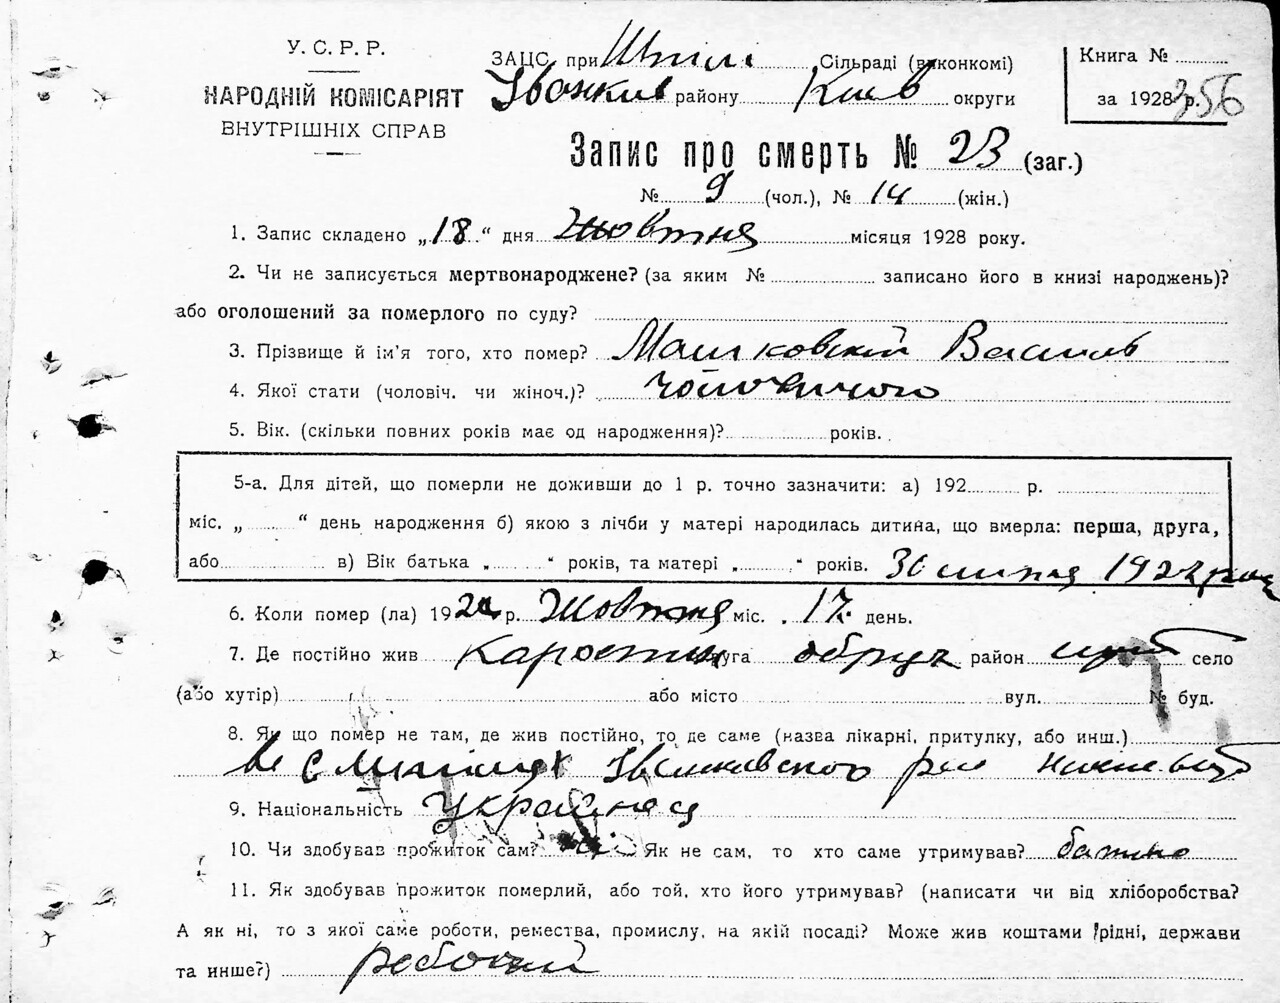 У. С. Р. Р.
НАРОДНІЙ КОМІСАРІЯТ
ВНУТРІШНІХ СПРАВ
ЗАЦС при Сільраді (виконкомі)
Іванків району Київ округи
Книга № 356
за 1928 р.
Запис про смерть № 23 (заг.)
№ 9 (чол.), № 14 (жін.)
1. Запис складено „18“ дня Жовтня місяця 1928 року.
2. Чи не записується мертвонароджене? (за яким № записано його в книзі народжень)?
або оголошений за померлого по суду?
3. Прізвище й ім'я того, хто помер? Машковский Василь
4. Якої стати (чоловіч. чи жіноч.)? чоловичого
5. Вік. (скільки повних років має од народження)? років.
5-а. Для дітей, що померли не доживши до 1 р. точно зазначити: а) 192 р.
міс. „ “ день народження б) якою з лічби у матері народилась дитина, що вмерла: перша, друга,
або в) Вік батька „ “ років, та матері „ “ років. 30 липня
6. Коли помер (ла) 192 р. Жовтня міс. 17 день.
7. Де постійно жив округа район село
(або хутір) або місто вул. № буд.
8. Як що помер не там, де жив постійно, то де саме (назва лікарні, притулку, або инш.)
9. Національність Украйнец
10. Чи здобував прожиток сам? Як не сам, то хто саме утримував? батько
11. Як здобував прожиток померлий, або той, хто його утримував? (написати чи від хліборобства?
А як ні, то з якої саме роботи, ремества, промислу, на якій посаді? Може жив коштами рідні, держави
та инше?) робочий